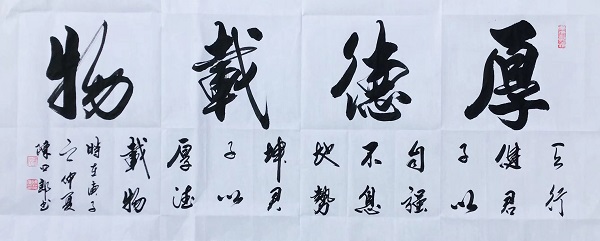 厚德載物
天行
健君
子以
自強
不息
地勢
坤君
子以
厚德
載物
時在庚子
之仲夏